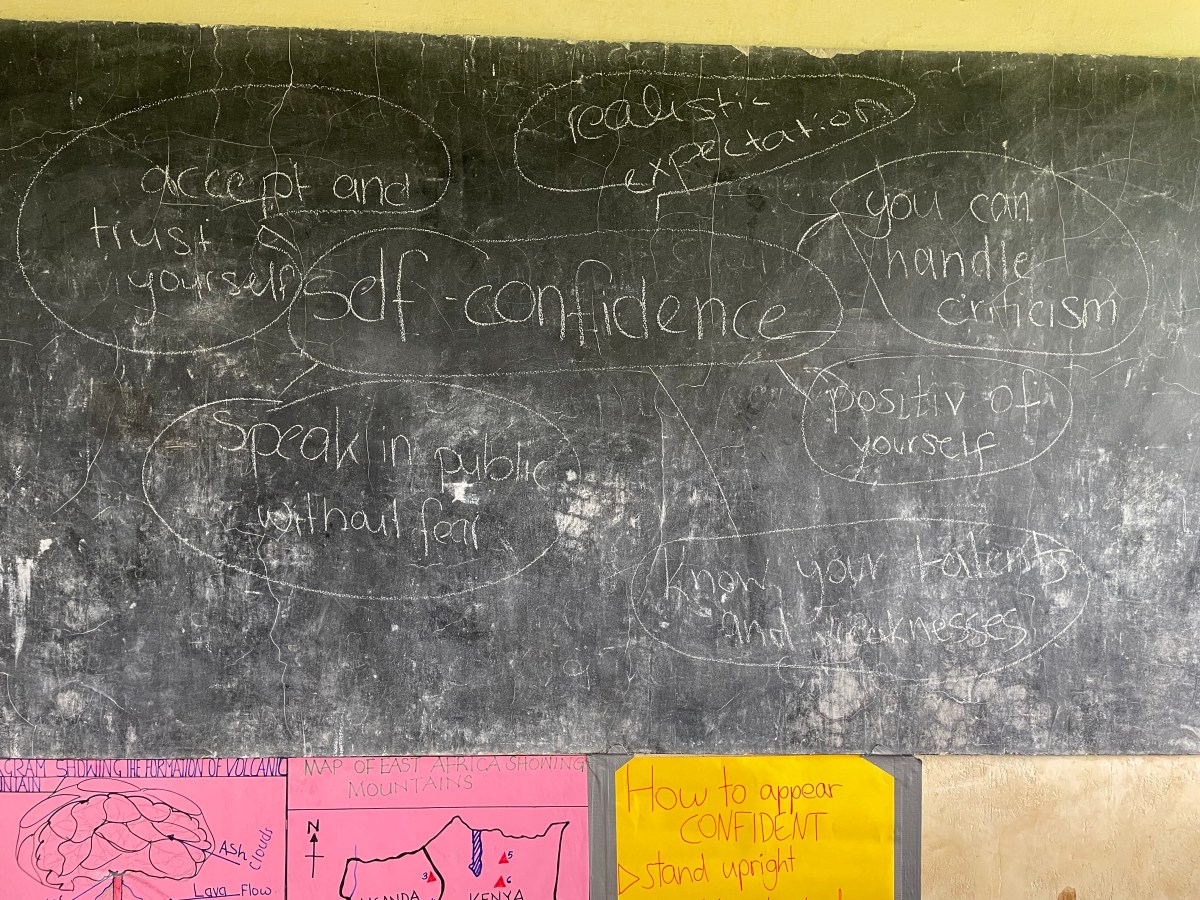 realistic
expectation
accept and
trust
yourself
you can
handle
criticism
self-confidence
positiv of
yourself
Speak in public
without fear
know your talents
and weaknesses
AGRAM SHOWING THE FORMATION OF VOLCANIC
UNTAIN
Ash
clouds
Lava Flow
MAP OF EAST AFRICA SHOWING
MOUNTAINS
N
5
3
6
UGANDA
KENYA
How to appear
CONFIDENT
stand upright